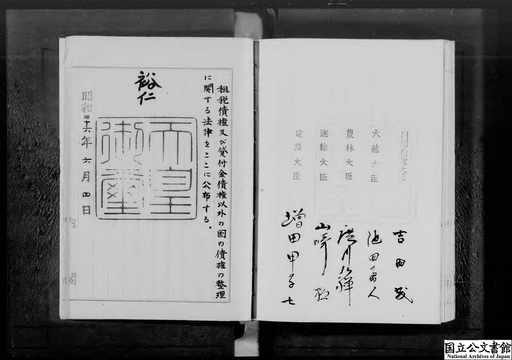 内閣総理大臣
吉田茂
大蔵大臣
池田勇人
農林大臣
廣川弘禅
運輸大臣
山崎猛
建設大臣
増田甲子七
租税債権及び貸付金債権以外の国の債権の整理
に関する法律をここに公布する。
裕仁
天皇
御璽
昭和二十六年六月四日
内閣
国立公文書館
National Archives of Japan